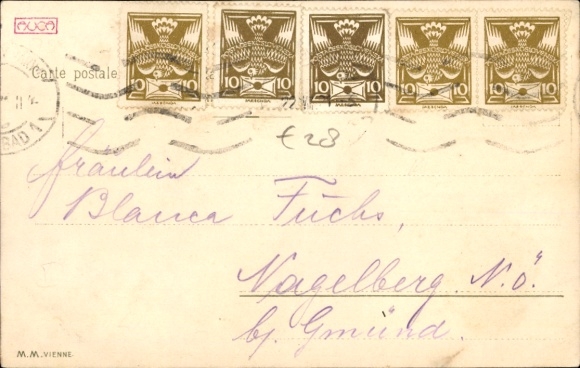 Carte postale
10 10 10 10 10 10 10 10 10 10
€28
Fräulein
Blanca Fuchs,
Nagelberg N.Ö.
bj Gmünd.
M.M.VIENNE.